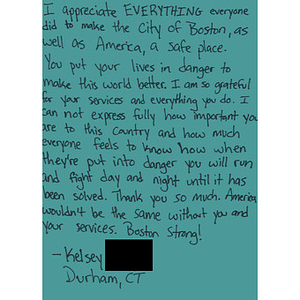 I appreciate EVERYTHING everyone
did to make the City of Boston, as
well as America, a safe place.
You put your lives in danger to
make this world better. I am so grateful
for your services and everything you do. I
can not express fully how important you
are to this Country and how much
everyone feels to know how when
they're put into danger you will run
and fight day and night until it has
been solved. Thank you so much. America
wouldn't be the same without you and
your services. Boston Strong!
- Kelsey
Durham, CT